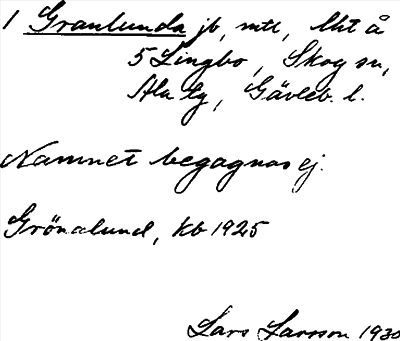 1 Granlunda jb, mtl, lht å
5 Lingbo, Skog sn,
Ala tg, Gävleb. l.
Namnet begagnas ej.
Grönalund, kb 1925
Lars Larsson 1930